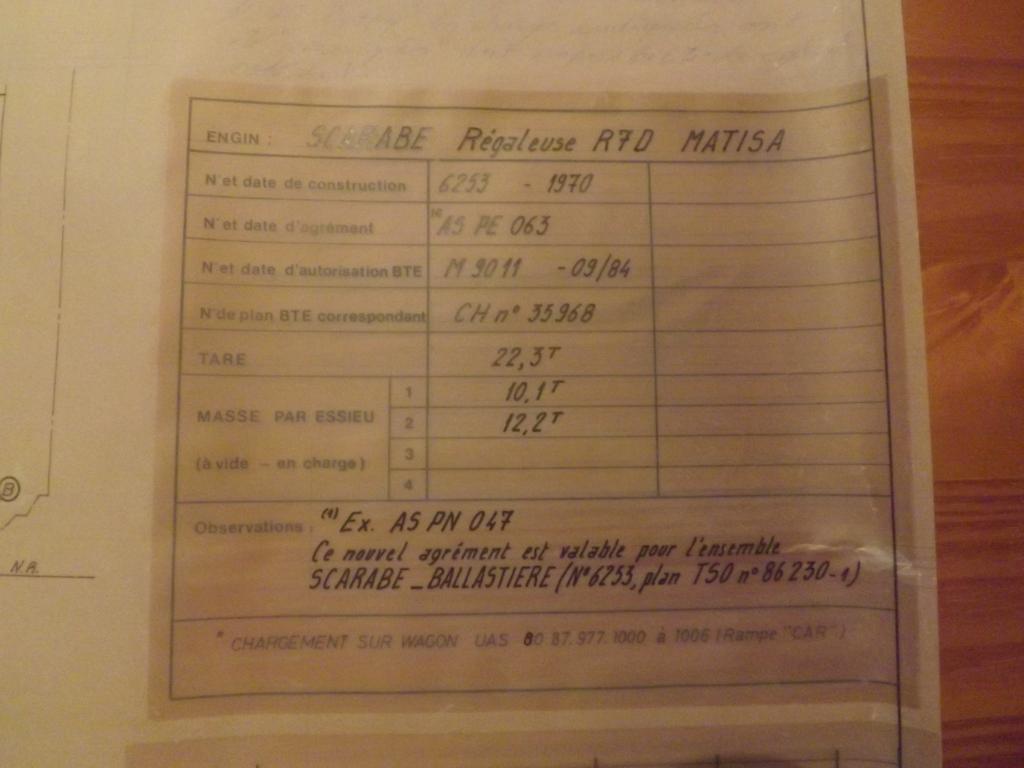 ENGIN : SCARABE Régaleuse R7D MATISA
N° et date de construction 6253 - 1970
N° et date d'agrément (1) AS PE 063
N° et date d'autorisation BTE M 9011 - 09/84
N° de plan BTE correspondant CH n° 35968
TARE 22,3T
MASSE PAR ESSIEU
(à vide - en charge)
1 10,1T
2 12,2T
3
4
Observations : (1) Ex. AS PN 047
Ce nouvel agrément est valable pour l'ensemble
SCARABE _ BALLASTIERE (N°6253, plan TSO n° 86 230-1)
* CHARGEMENT SUR WAGON UAS 80 87. 977. 1000 à 1006 (Rampe "CAR")
B
N.R.